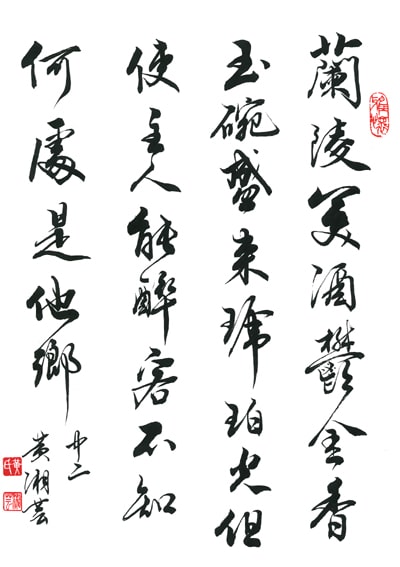 蘭陵美酒鬱金香
玉碗盛来琥珀光但
使主人能醉客不知
何處是他鄉
廿二
黄湘芸